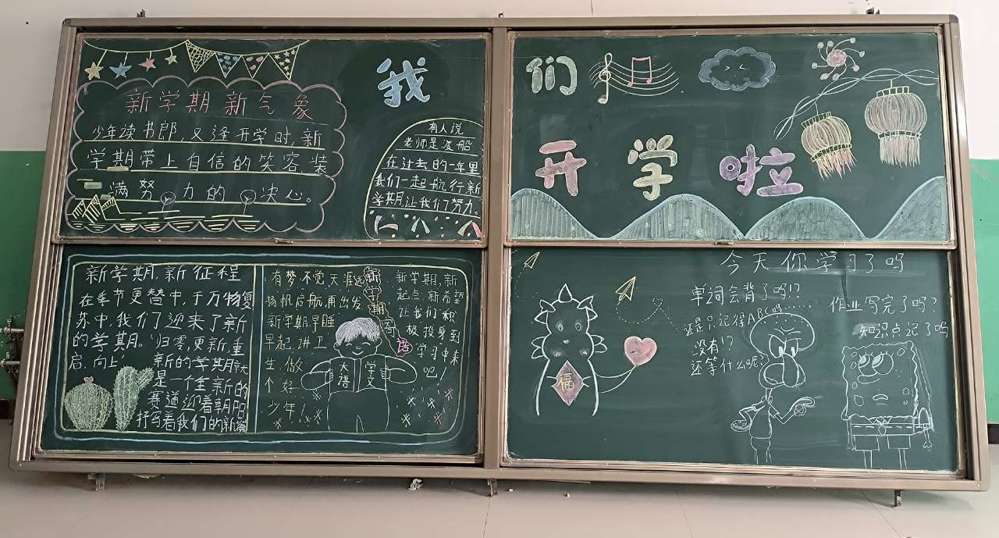 我们
开学啦
新学期新气象
少年读书郎，又逢开学时，新
学期带上自信的笑容装
满努力的决心。
有人说
老师是渡船
在过去的一年里
我们一起航行新
学期让我们努力。
新学期，新征程
在季节更替中，于万物复
苏中，我们迎来了新
的学期。归零更新重
启，向上。新的学期
是一个全新的
赛道迎着朝阳
抒写着我们的新篇
有梦不觉天涯远
扬帆启航再出发
新学期早睡
早起，讲卫
生，做
个好
少年！
新学期
语
天
落
学
文
新学期，新
起点，新希望
让我们积
极投身到
学习中来
吧！
今天你学习了吗
福
单词会背了吗!?
还是只记得ABC吗
没有!?
还等什么呢?
作业写完了吗?
知识点记了吗